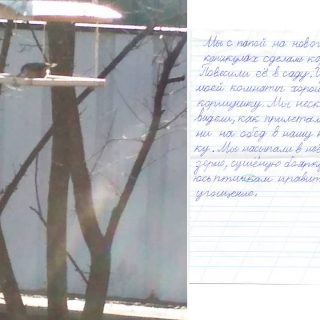 Мы с папой на новог
каникулах сделали ко
Повесили её в саду. И
моей комнаты хорош
кормушку. Мы неск
видели, как прилетал
ни на обед в нашу к
ку. Мы насыпали в неё
зерно, сушёную боярку
юсь птичкам нравит
угощение.